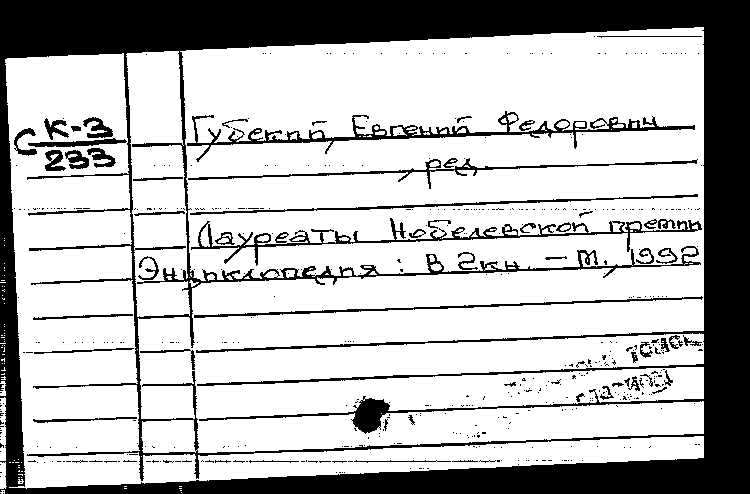 С К-3
233
Губский, Евгений Федорович
, ред.
Лауреаты Нобелевской премии
Энциклопедия: В 2кн. - М., 1992